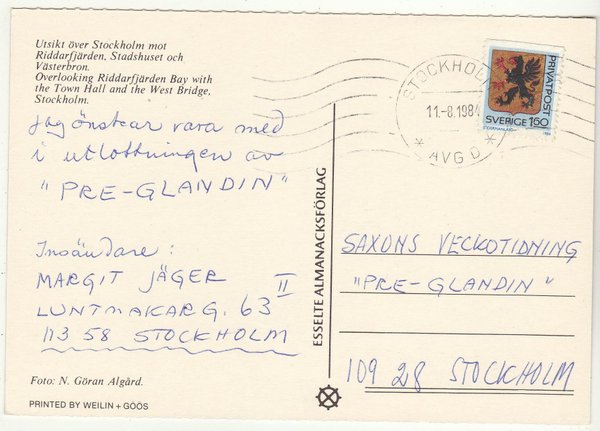 Utsikt över Stockholm mot
Riddarfjärden, Stadshuset och
Västerbron.
Overlooking Riddarfjärden Bay with
the Town Hall and the West Bridge,
Stockholm.
Jag önskar vara med
i utlottningen av
"PRE-GLANDIN"
Insändare:
MARGIT JÄGER
LUNTMAKARG. 63 II
113 58 STOCKHOLM
Foto: N. Göran Algård.
PRINTED BY WEILIN + GÖÖS
ESSELTE ALMANACKSFÖRLAG
STOCKHOL
11.-8.198
* AVG D *
PRIVATPOST
SVERIGE 150
SAXONS VECKOTIDNING
"PRE-GLANDIN"
109 28 STOCKHOLM